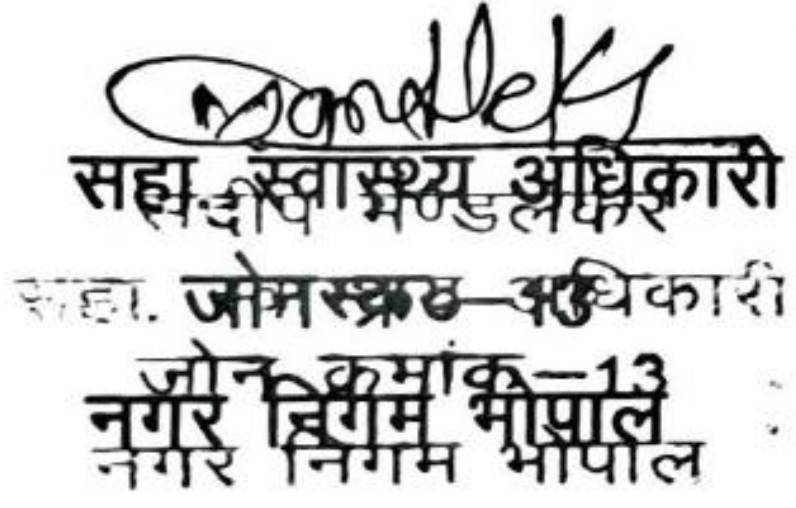 सहा स्वास्थ्य अधिकारी
संदीप मण्डलेकर
सहा. अधिकारी
जोन क्रमांक-13
नगर निगम भोपाल
नगर निगम भोपाल